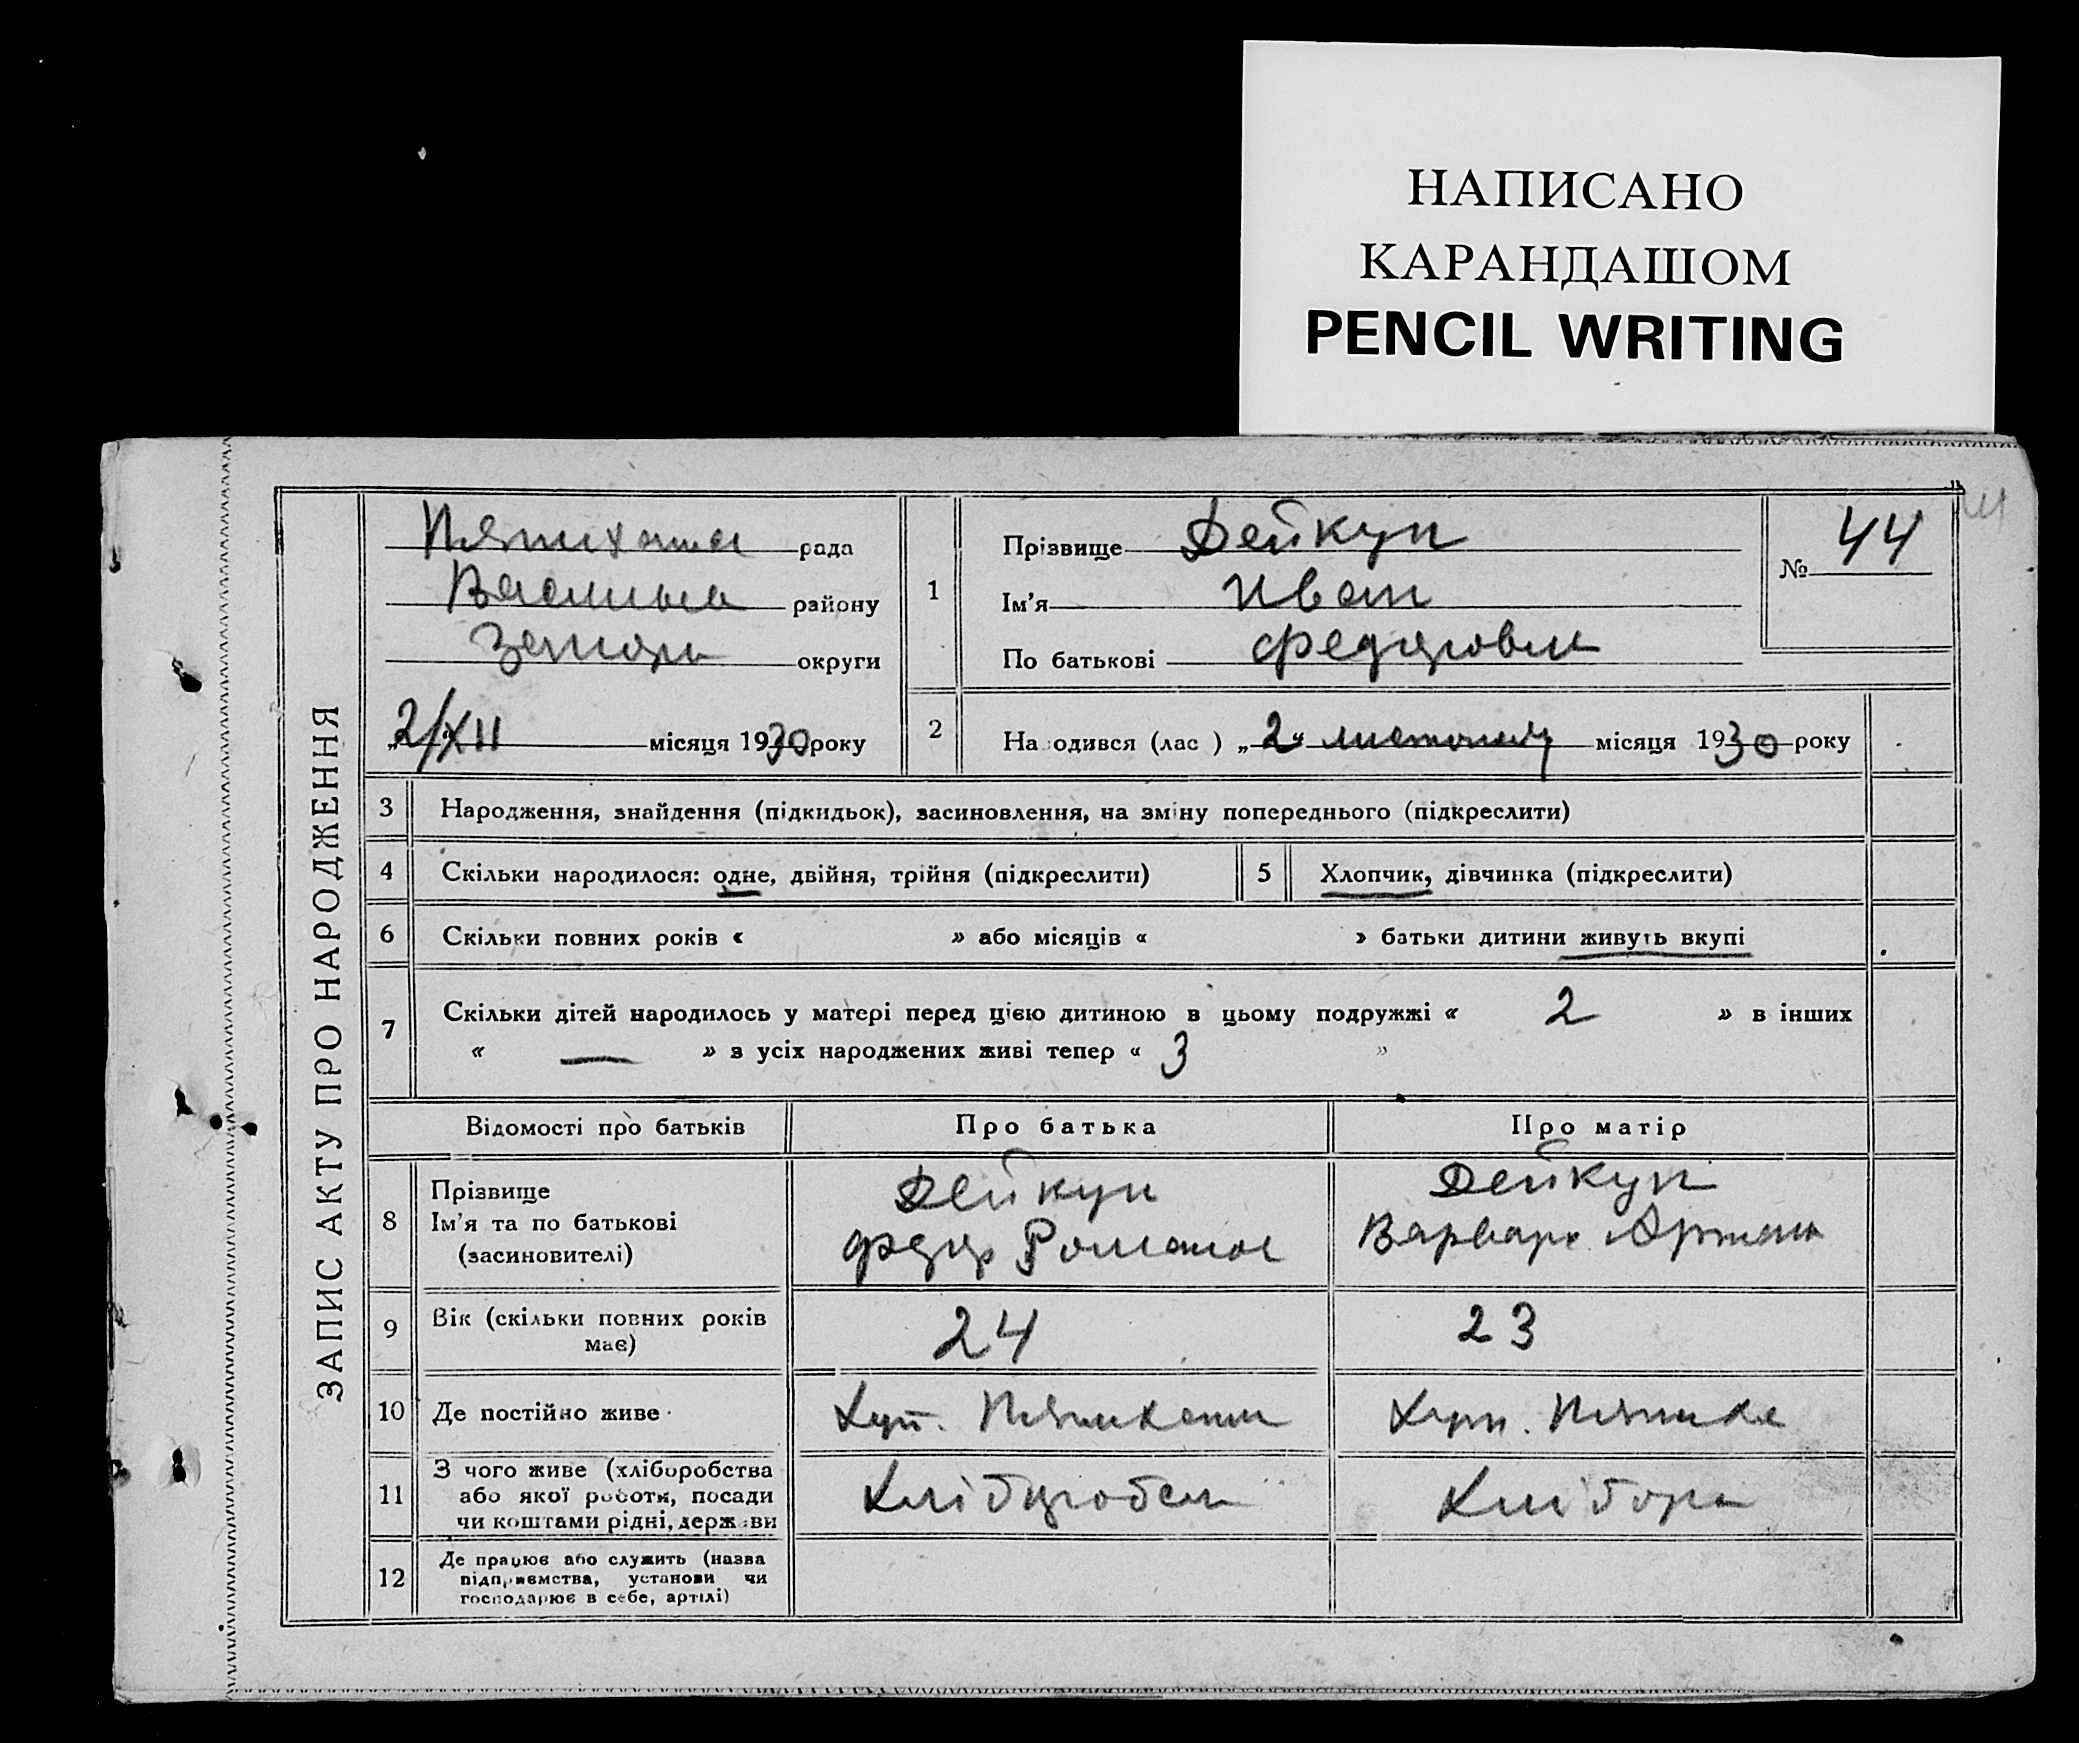 НАПИСАНО
КАРАНДАШОМ
PENCIL WRITING
ЗАПИС АКТУ ПРО НАРОДЖЕННЯ
рада
району
округи
2/XII місяця 1930 року
1
Прізвище Дейкун
Ім'я Иван
По батькові
№ 44
2 На одився (лас ) „2" листопад місяця 1930 року
3 Народження, знайдення (підкидьок), засиновлення, на зміну попереднього (підкреслити)
4 Скільки народилося: одне, двійня, трійня (підкреслити)
5 Хлопчик, дівчинка (підкреслити)
6 Скільки повних років « » або місяців « » батьки дитини живуть вкупі
7 Скільки дітей народилось у матері перед цією дитиною в цьому подружжі « 2 » в інших
« — » з усіх народжених живі тепер « 3 »
Відомості про батьків Про батька Про матір
8 Прізвище
Ім'я та по батькові
(засиновителі)
Дейкун
Федор Роман
Дейкун
Варвара
9 Вік (скільки повних років
має)
24 23
10 Де постійно живе
Хут.
11 З чого живе (хліборобства
або якої роботи, посади
чи коштами рідні, держави
Хлібороб
Хлібор
12 Де працює або служить (назва
підприємства, установи чи
господарює в себе, артілі)